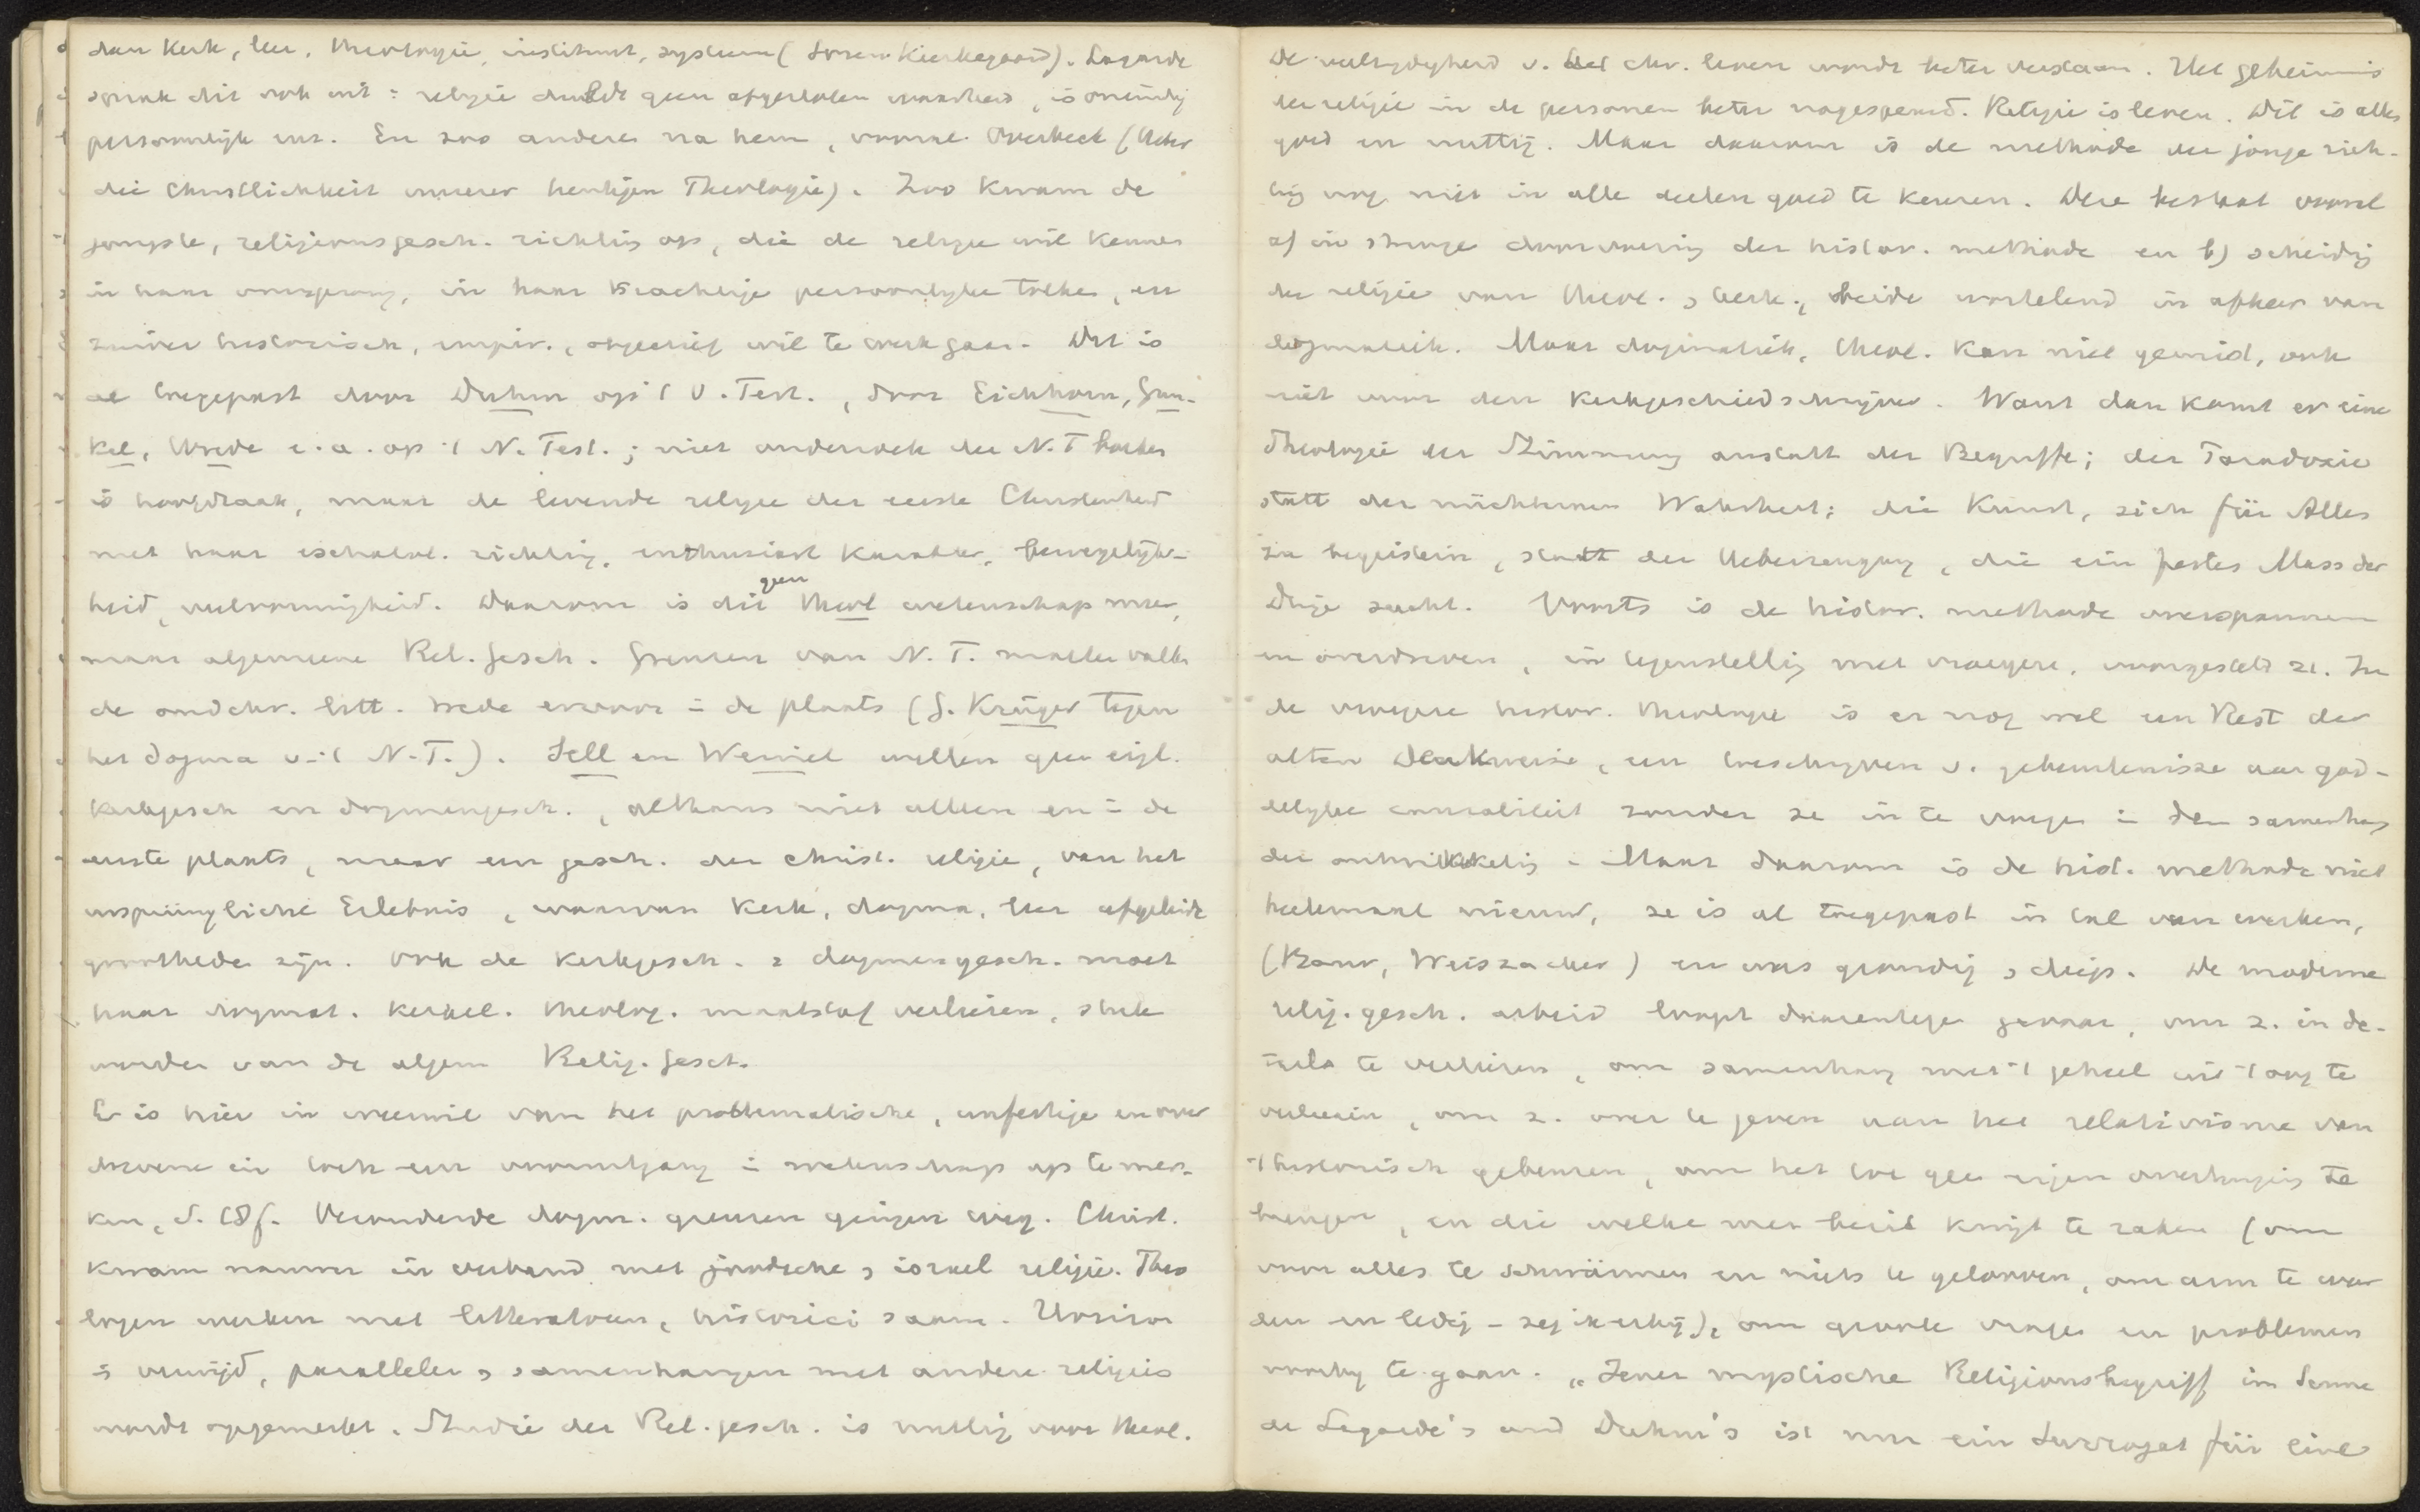 dan Kerk, leer, theologie, instituut, systeem (Sören Kierkegaard). Lagarde
sprak dit ook uit: religie duldt geen afgesloten waarheid, is oneindig
persoonlijk enz. En zoo anderen na hem, vooral Overbeck (Ueber
die Christlichkeit unserer heutigen Theologie). Zoo kwam de
jongste, religionsgesch. richting op, die de religie wil kennen
in haar oorsprong, in haar krachtige persoonlijke tolken, en
zuiver historisch, empir., objectief wil te werk gaan. Dit is
al toegepast door Duhm op 't O. Test., door Eichhorn, Gun-
kel, Wrede e.a. op 't N. Test.; niet onderzoek der N.T. boeken
is hoofdzaak, maar de levende religie der eerste Christenheid
met haar eschatol. richting, enthusiast karakter, bewegelijk-
heid, veelvormigheid. Daarom is dit geen theol wetenschap meer,
maar algemeene Rel. Gesch. Grenzen van N.T. moeten vallen
de oudchr. litt. trede ervoor in de plaats (G. Krüger tegen
het dogma v. 't N.T.). Sell en Weinel willen geen eigl.
kerkgesch en dogmengesch., althans niet alleen en in de
eerste plaats, maar een gesch. der christ. religie, van het
ursprüngliche Erlebnis, waarvan Kerk, dogma, leer afgeleide
grootheden zijn. Ook de Kerkgesch. & dogmengesch. moet
haar dogmat. kerkel. theolog. maatstaf verliezen, stuk
worden van de algem Relig. Gesch.
Er is hier in weerwil van het problematische, unfertige en over
drevene in toch een vooruitgang in wetenschap op te mer-
ken, S. 18f. Verouderde dogm. grenzen gingen weg. Christ.
kwam nauwer in verband met joodsche & israel religie. Theo
logen werken met litteratoren, historici saam. Horizon
is verwijd, parallelen & samenhangen met andere religies
wordt opgemerkt. Studie der Rel. gesch. is nuttig voor theol.
De veelzijdigheid v. het chr. leven wordt beter verstaan. Het geheimnis
der religie in de personen beter nagespeurd. Religie is leven. Dit is alles
goed en nuttig. Maar daarom is de methode der jonge rich-
ting nog niet in alle deelen goed te keuren. Deze bestaat vooral
a) in strenge doorvoering der histor. methode en b) scheiding
der religie van theol. & kerk, beide wortelend in afkeer van
dogmatiek. Maar dogmatiek, theol. kan niet gemist, ook
niet voor den kerkgeschiedschrijver. Want dan komt er eine
Theologie der Stimmung anstatt der Begriffe; der Paradoxie
statt der nüchternen Wahrheit; die Kunst, sich für Alles
zu begeistern, statt der Ueberzeugung, die ein festes Mass der
Dinge sucht. Voorts is de histor. methode overspannen
en overdreven, in tegenstelling met vroegere, voorgesteld 21. In
de vroegere histor. theologie is er nog wel een Rest der
alten Denkweise, een toeschrijven v. gebeurtenissen aan god-
delijke causaliteit zonder ze in te voegen in den samenhang
der ontwikkeling. Maar daarom is de hist. methode niet
heelemaal nieuw, ze is al toegepast in tal van werken,
(Baur, Weiszäcker) en was grondig & diep. De moderne
relig. gesch. arbeid loopt daarentegen gevaar, om z. in de-
tails te verliezen, om samenhang met 't geheel uit 't oog te
verliezen, om z. over te geven aan het relativisme van
't historisch gebeuren, om het tot geen eigen overtuiging te
brengen, en die welke men bezit kwijt te raken (om
voor alles te schwärmen en niets te gelooven, om arm te wor
den en ledig - zeg ik erbij), om groote vragen en problemen
voorbij te gaan. „Jener mystische Religionsbegriff im Sinne
de Lagarde's und Duhm's ist nur ein Surrogat für eine